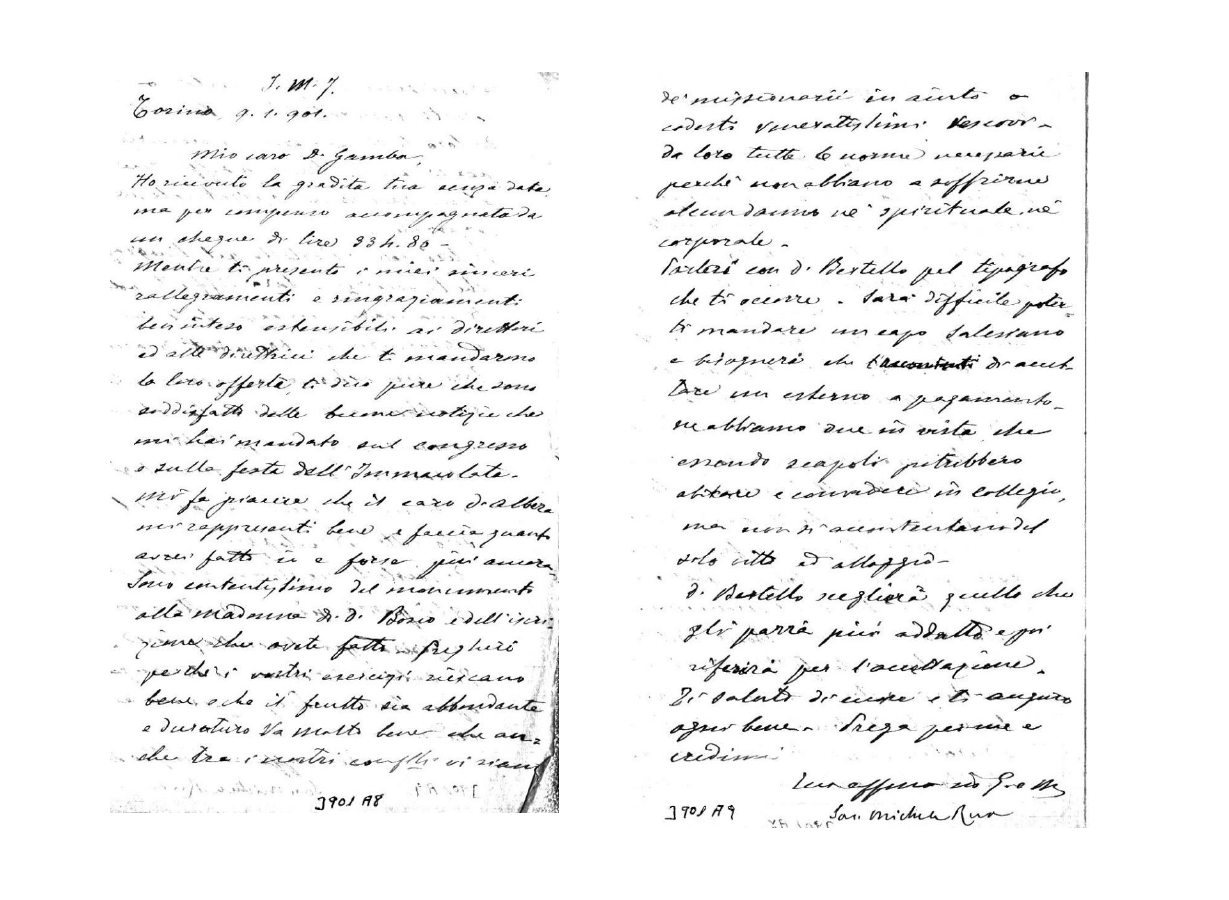 J. M. J.
Torino 9. 1. 901.
Mio caro D. Gamba,
Ho ricevuto la gradita tua senza data
ma per compenso accompagnata da
un cheque di lire 934.80 -
Mentre ti presento i miei sinceri
rallegramenti e ringraziamenti
ben inteso estensibili ai direttori
ed alle direttrici che ti mandarono
la loro offerta, ti dico pure che sono
soddisfatto delle buone notizie che
mi hai mandato sul congresso
e sulla festa dell'Immacolata.
Mi fa piacere che il caro D. Albera
mi rappresenti bene e faccia quanto
avrei fatto io e forse più ancora
Sono contentissimo del monumento
alla Madonna di D. Bosco e dell'iscri-
zione che avete fatto. Pregherò
perchè i vostri esercizi riescano
bene e che il frutto sia abbondante
e duraturo Va molto bene che an=
che tra i nostri vi siano
J901 A8
de' missionarii in aiuto a
codesti veneratissimi Vescovi -
da loro tutte le norme necessarie
perchè non abbiano a soffrirne
alcun danno nè spirituale, nè
corporale -
Parlerò con d. Bertello pel tipografo
che ti occorre - Sarà difficile poter-
ti mandare un capo Salesiano
e bisognerà che di accet-
tare un esterno a pagamento -
ne abbiamo due in vista che
essendo scapoli potrebbero
abitare e convivere in collegio,
ma non si accontentano del
solo vitto ed alloggio -
d. Bertello sceglierà quello che
gli parrà più addatto e poi
riferirà per l'accettazione.
Ti saluto di cuore e ti auguro
ogni bene - Prega per me e
credimi
Tuo affmo in G. e M.
Sac. Michele Rua
J901 A9